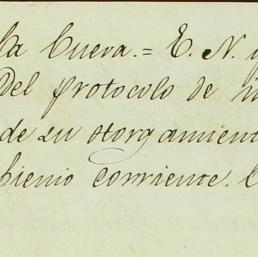 la Cueva.= E. N. y
Del protocolo de
de su otorgamient
bienio corriente.